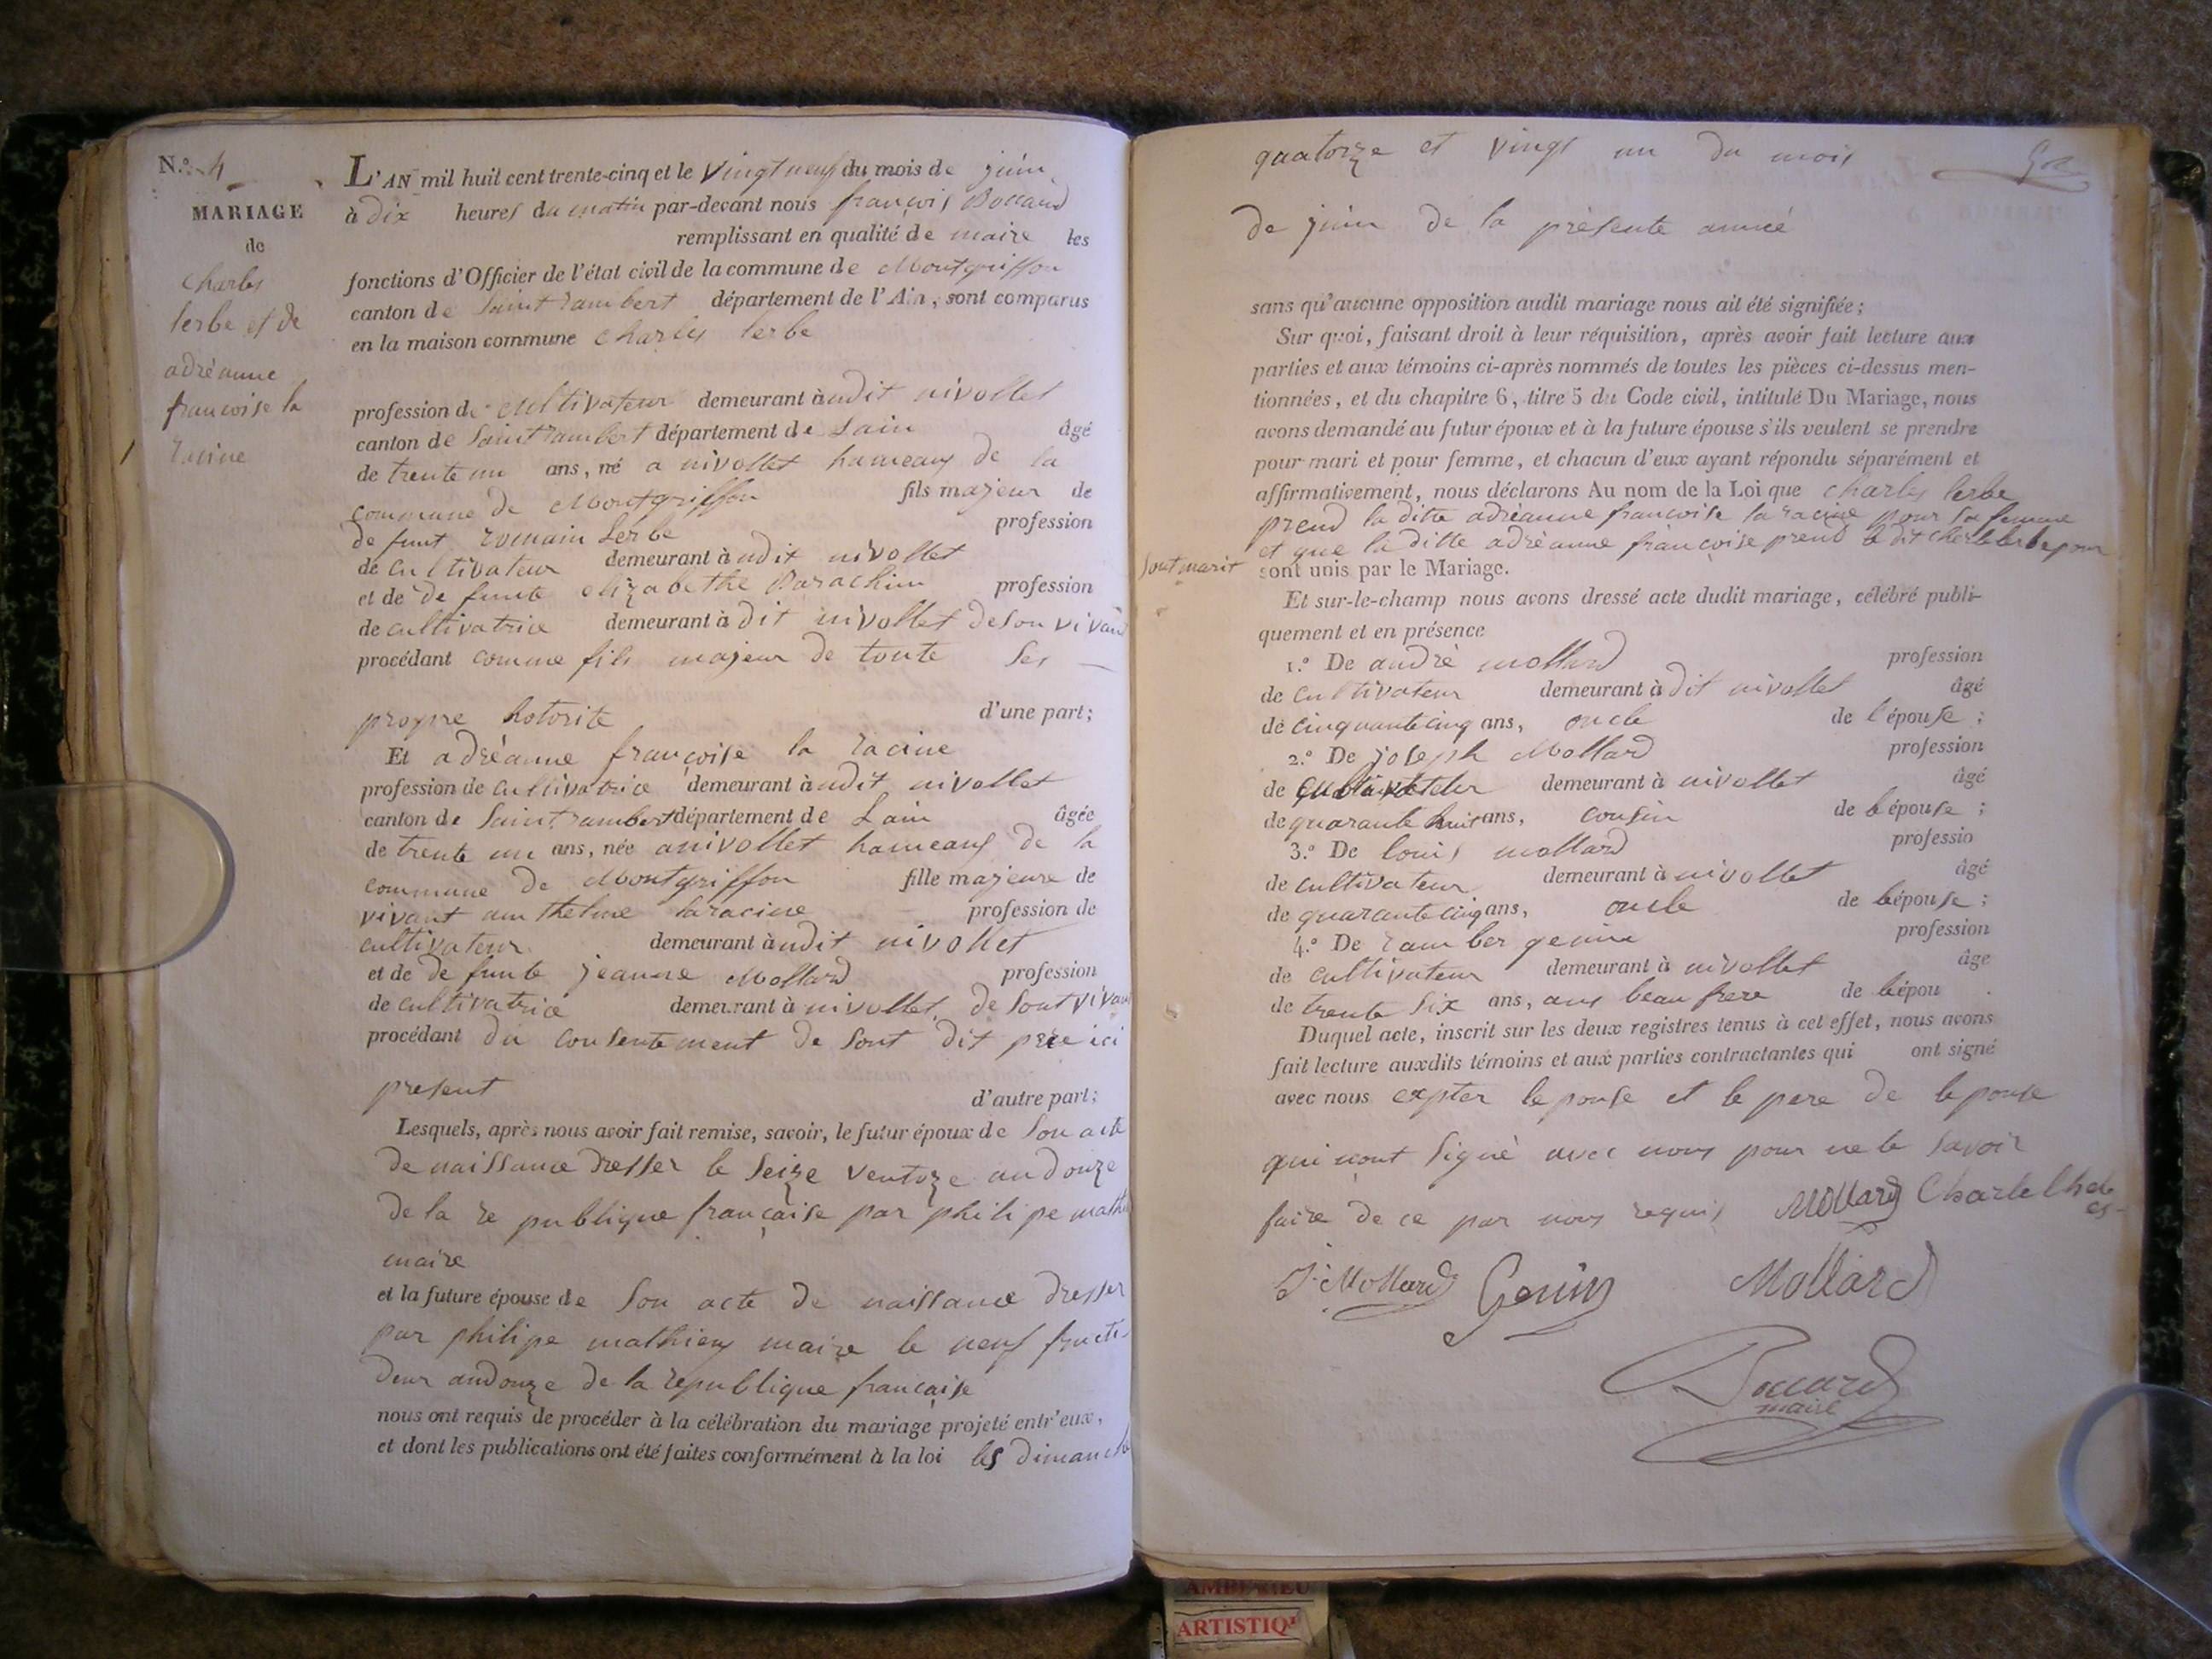 N.º 4
MARIAGE
de
charles
lerbe et de
adréanne
francoise la
racine
L'AN mil huil cent trente-cinq et le vingt neuf du mois de juin
à dix heures du matin par-devant nous françois Boccard
remplissant en qualité de maire les
fonctions d'Officier de l'état civil de la commune de Montgriffon
canton de Saint rambert département de l'Ain, sont comparus
en la maison commune charles lerbe
profession de cultivateur demeurant àudit nivollet
canton de Saint rambert département de Lain âgé
de trente un ans, né a nivollet hameaux de la
commune de Montgriffon fils majeur de
de funt romain Lerbe profession
de cultivateur demeurant àudit nivollet
et de de funte elizabethe Barachin profession
de cultivatrice demeurant à dit nivollet de son vivant
procédant comme fils majeur de toute ses
propre hotorite d'une part;
Et adréanne françoise la racine
profession de cultivatrice demeurant àudit nivollet
canton de Saint rambert département de Lain âgée
de trente un ans, née a nivollet hameaux de la
commune de Montgriffon fille majeure de
vivant anthelme laracine profession de
cultivateur demeurant àudit nivollet
et de de funte jeanne Mollard profession
de cultivatrice demeurant à nivollet de sont vivant
procédant du consentement de sont dit père ici
present d'autre part;
Lesquels, après nous avoir fait remise, savoir, le futur époux de son acte
de naissance dresser le seize ventoze an douze
de la re publique française par philipe mathi
maire
et la future épouse de son acte de naissance dresser
par philipe mathieux maire le neuf fructi-
deur an douze de la republique française
nous ont requis de procéder à la célébration du mariage projeté entr'eux,
et dont les publications ont été faites conformément à la loi les dimanche
quatorze et vingt un du mois
de juin de la présente année
sans qu'aucune opposition audit mariage nous ait été signifiée;
Sur quoi, faisant droit à leur réquisition, après avoir fait lecture aux
parties et aux témoins ci-après nommés de toutes les pièces ci-dessus men-
tionnées, et du chapitre 6, titre 5 du Code civil, intitulé Du Mariage, nous
avons demandé au futur époux et à la future épouse s'ils veulent se prendre
pour mari et pour femme, et chacun d'eux ayant répondu séparément et
affirmativement, nous déclarons Au nom de la Loi que charles lerbe
prend la ditte adréanne francoise la racine pour sa femme
et que la ditte adréanne françoise prend le dit charle lerbe pour
sont marit sont unis par le Mariage.
Et sur-le-champ nous avons dressé acte dudit mariage, célébré publi-
quement et en présence
1.º De andré mollard profession
de cultivateur demeurant à dit nivollet âgé
de cinquante cinq ans, oncle de l'épouse;
2.º De joseph Mollard profession
de cultivateur demeurant à nivollet âgé
de quarante huit ans, cousin de lépouse;
3.º De louis mollard professio
de cultivateur demeurant à nivollet âgé
de quarante cinq ans, oncle de lépouse;
4.º De ramber genin profession
de cultivateur demeurant à nivollet âge
de trente six ans, aux beau frere de lépou
Duquel acte, inscrit sur les deux registres tenus à cet effet, nous avons
fait lecture auxdits témoins et aux parties contractantes qui ont signé
avec nous expter lepouse et le pere de lepouse
qui nont signé avec nous pour ne le savoir
faire de ce par nous requis Mollard Charle
J. Mollard Genin Mollard
Boccard
maire
AMBERIEU
ARTISTIQ